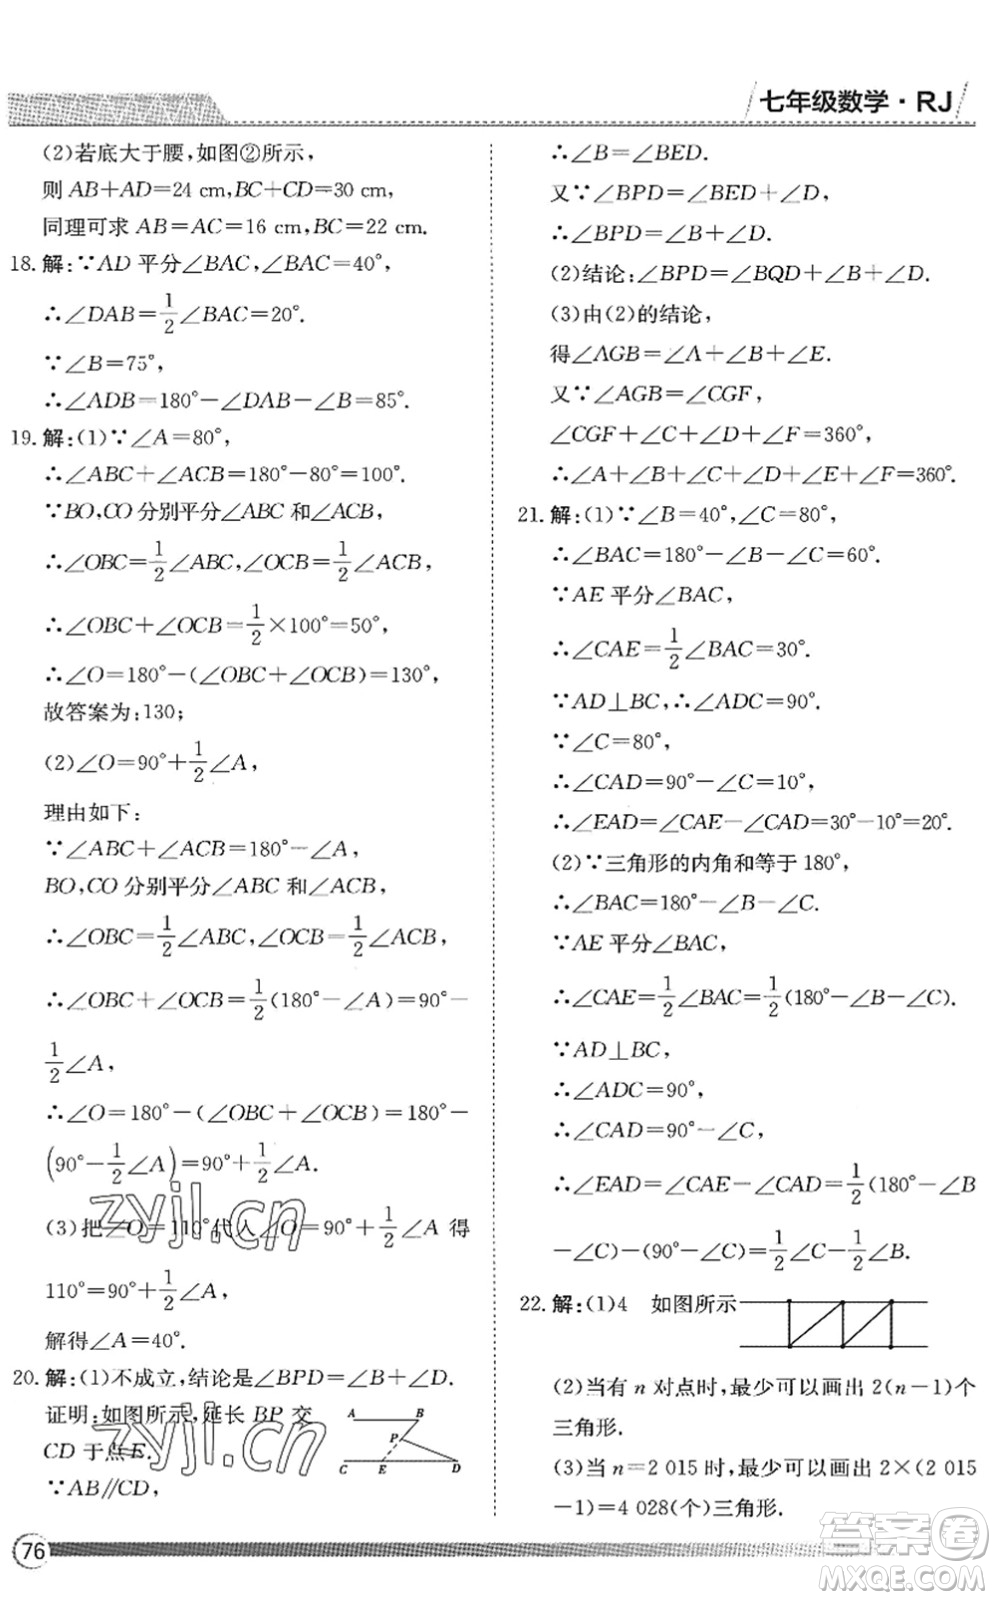 七年级数学·RJ
(2)若底大于腰,如图②所示,
则 AB+AD=24 cm,BC+CD=30 cm,
同理可求 AB=AC=16 cm,BC=22 cm.
18. 解:∵AD 平分∠BAC,∠BAC=40°,
∴∠DAB=1/2∠BAC=20°.
∵∠B=75°,
∴∠ADB=180°-∠DAB-∠B=85°.
19. 解:(1)∵∠A=80°,
∴∠ABC+∠ACB=180°-80°=100°.
∵BO,CO 分别平分∠ABC 和∠ACB,
∴∠OBC=1/2∠ABC,∠OCB=1/2∠ACB,
∴∠OBC+∠OCB=1/2×100°=50°,
∴∠O=180°-(∠OBC+∠OCB)=130°,
故答案为:130;
(2)∠O=90°+1/2∠A,
理由如下:
∵∠ABC+∠ACB=180°-∠A,
BO,CO 分别平分∠ABC 和∠ACB,
∴∠OBC=1/2∠ABC,∠OCB=1/2∠ACB,
∴∠OBC+∠OCB=1/2(180°-∠A)=90°-
1/2∠A,
∴∠O=180°-(∠OBC+∠OCB)=180°-
(90°-1/2∠A)=90°+1/2∠A.
(3)把∠O=110°代入∠O=90°+1/2∠A 得
110°=90°+1/2∠A,
解得∠A=40°.
20. 解:(1)不成立,结论是∠BPD=∠B+∠D.
证明:如图所示,延长 BP 交
CD 于点E.
∵AB//CD,
A B
P
C E D
∴∠B=∠BED.
又∵∠BPD=∠BED+∠D,
∴∠BPD=∠B+∠D.
(2)结论:∠BPD=∠BQD+∠B+∠D.
(3)由(2)的结论,
得∠AGB=∠A+∠B+∠E.
又∵∠AGB=∠CGF,
∠CGF+∠C+∠D+∠F=360°,
∴∠A+∠B+∠C+∠D+∠E+∠F=360°.
21. 解:(1)∵∠B=40°,∠C=80°,
∴∠BAC=180°-∠B-∠C=60°.
∵AE 平分∠BAC,
∴∠CAE=1/2∠BAC=30°.
∵AD⊥BC,∴∠ADC=90°.
∵∠C=80°,
∴∠CAD=90°-∠C=10°,
∴∠EAD=∠CAE-∠CAD=30°-10°=20°.
(2)∵三角形的内角和等于180°,
∴∠BAC=180°-∠B-∠C.
∵AE 平分∠BAC,
∴∠CAE=1/2∠BAC=1/2(180°-∠B-∠C).
∵AD⊥BC,
∴∠ADC=90°,
∴∠CAD=90°-∠C,
∴∠EAD=∠CAE-∠CAD=1/2(180°-∠B
-∠C)-(90°-∠C)=1/2∠C-1/2∠B.
22. 解:(1)4 如图所示
(2)当有 n 对点时,最少可以画出 2(n-1)个
三角形.
(3)当 n=2 015 时,最少可以画出 2×(2 015
-1)=4 028(个)三角形.
76
zyjl.cn
zyjl.cn
答案卷
MXQE.COM